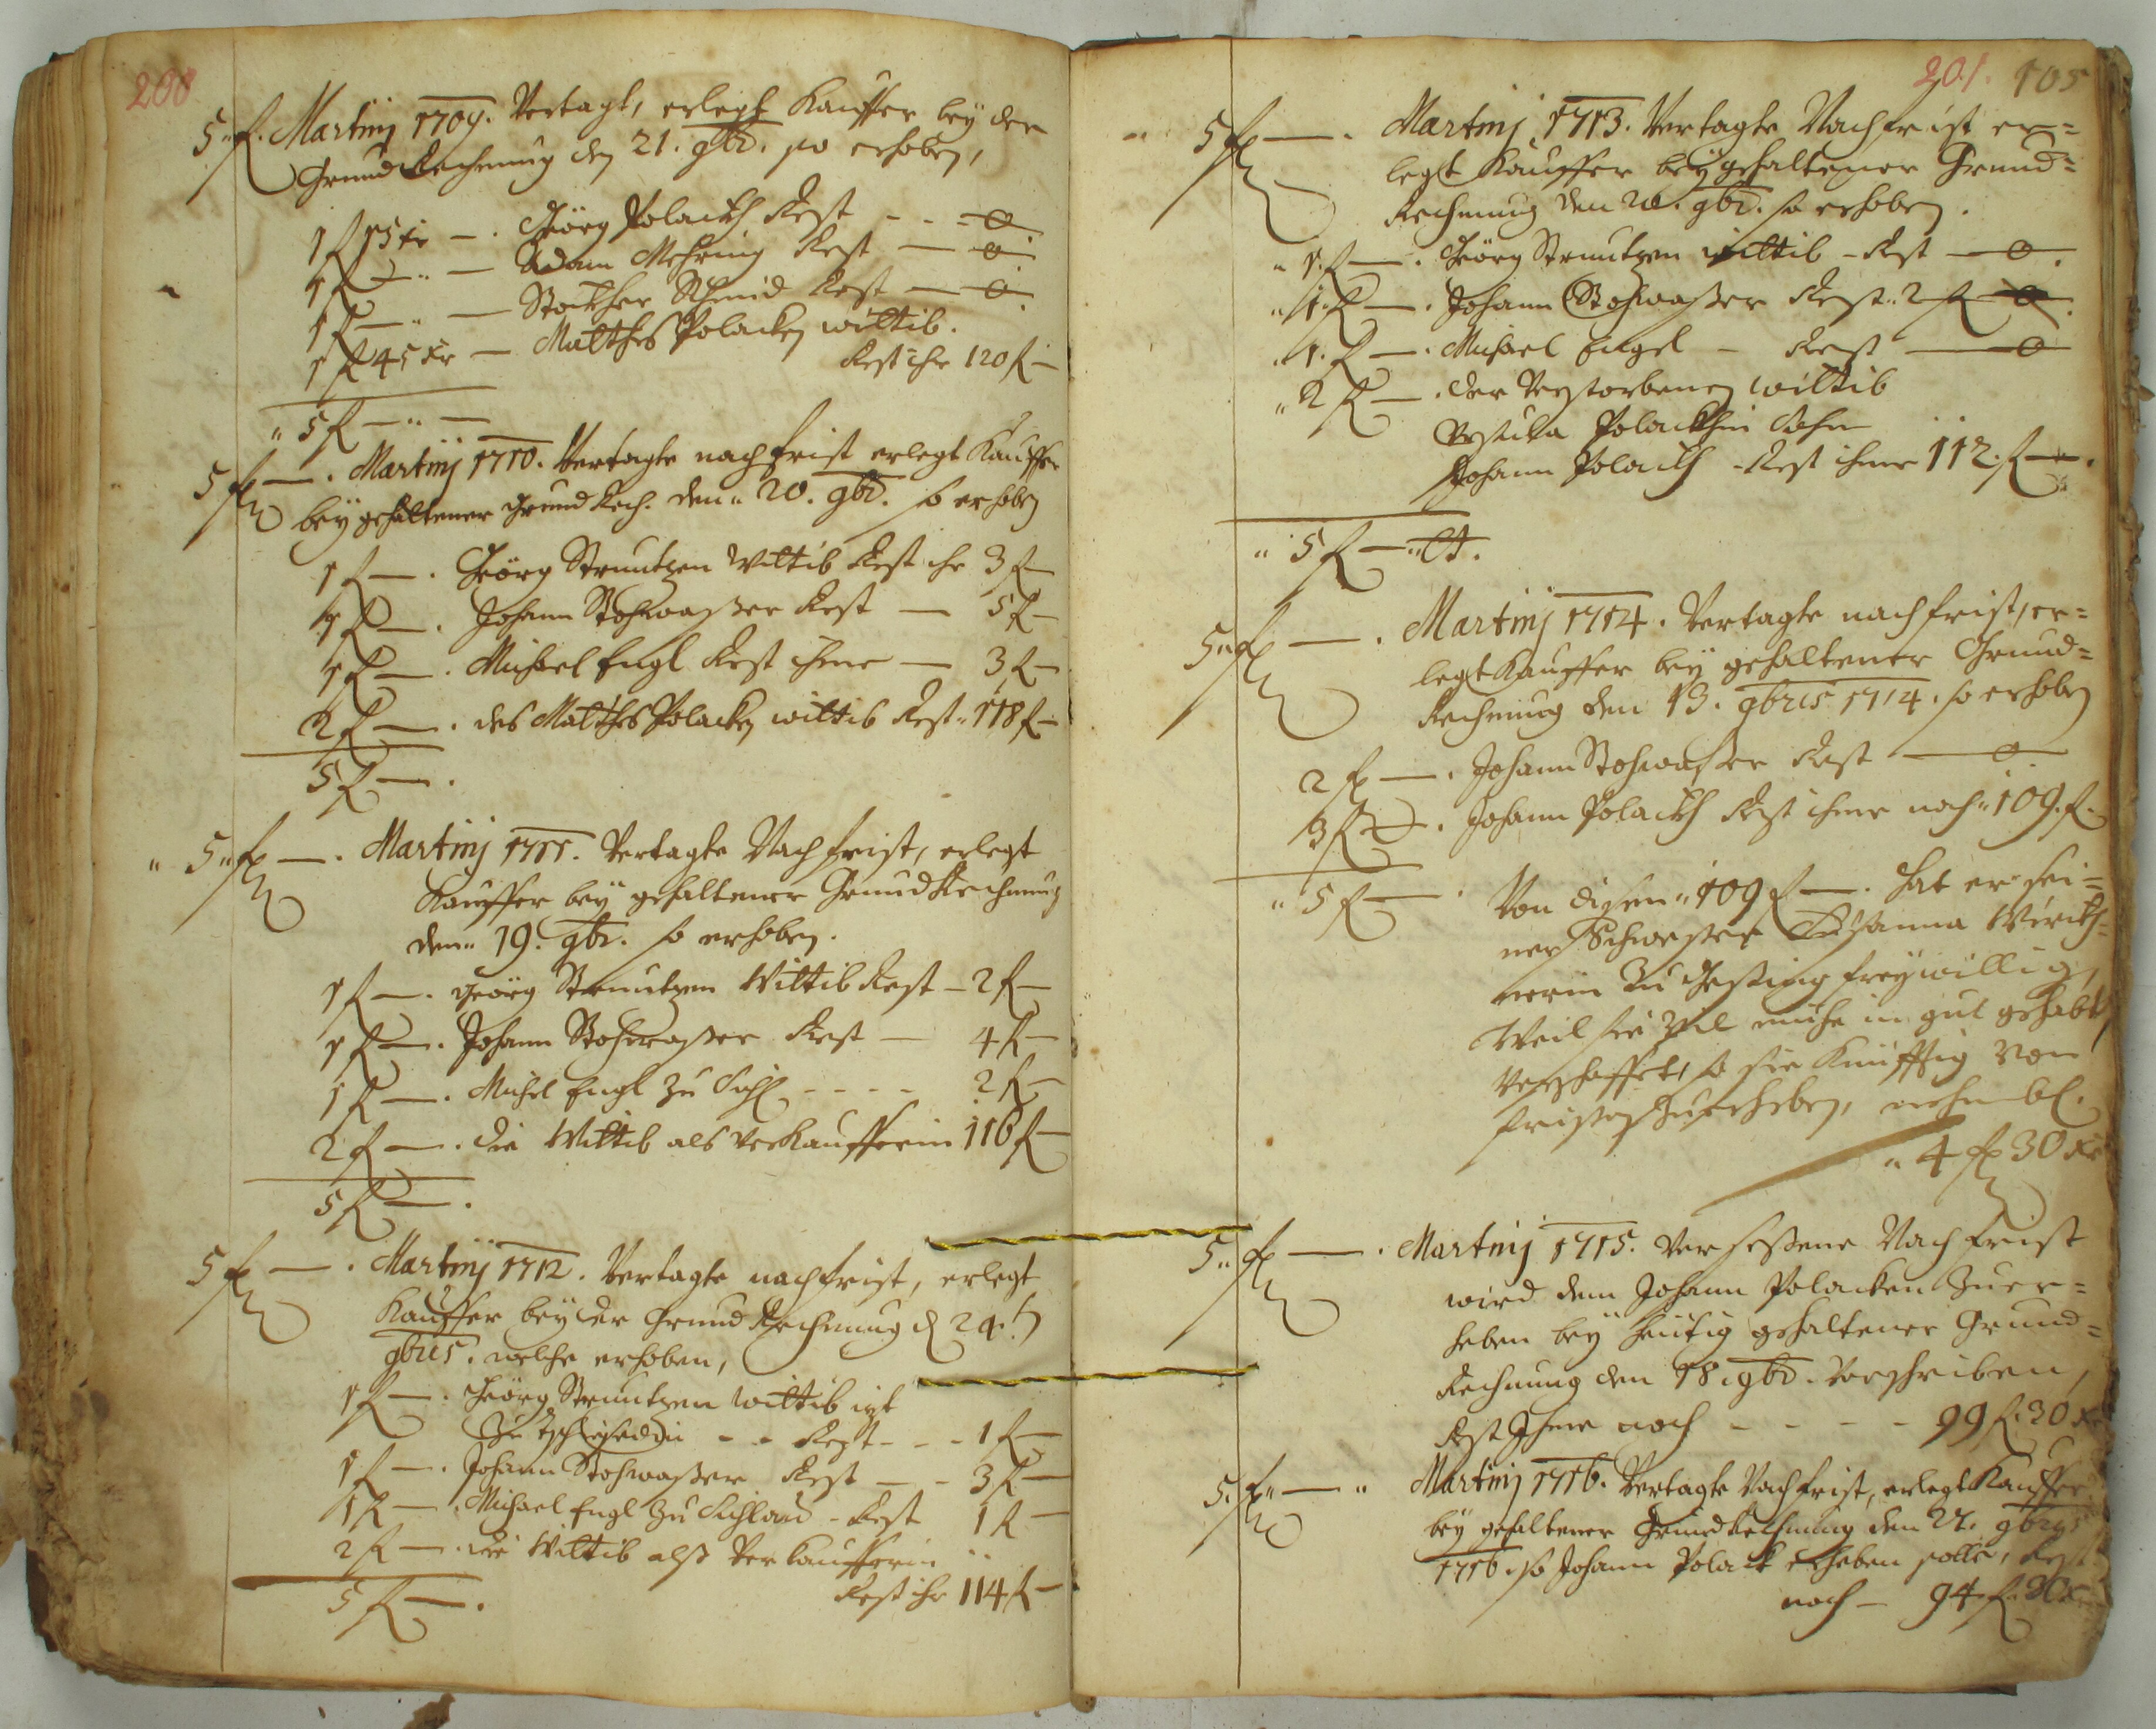 200
5 f. Martinj 1709. Vertagt, erlegt Kauffer bey der
Grund Rechnung den 21. gbr. so erhoben,
1 f 15 kr — . Geörg Polackh Rest - - - 0
1 f — " — Adam Mehring Rest — 0
1 f — " — Schmid Rest — 0
1 f 45 kr — Matthes Polacken wittib.
Rest ihr 120 f —
" 5 f — " —
5 f — . Martinj 1710. Vertagte nachfrist erlegt Kauffer
bey gehaltener Grund Rech. den " 20. gbr. so erhoben
1 f — . Geörg Strnutzen Wittib Rest ihr 3 f —
1 f — . Johann Stohwasser Rest — 5 f —
1 f — . Michael Engl Rest ihme — 3 f —
2 f — . des Matthes Polacken wittib Rest " 118 f —
5 f — .
" 5 " f — . Martinj 1711. Vertagte Nachfrist, erlegt
Kauffer bey gehaltener Grund Rechnung
den " 19. gbr. so erhoben.
1 f — . Geörg Strnutzen Wittib Rest — 2 f —
1 f — . Johann Stohwasser Rest — 4 f —
1 f — . Michel Engl zu - - - - 2 f —
2 f — . die Wittib als Verkaufferin 116 f —
5 f — .
5 f — . Martinj 1712. Vertagte nachfrist, erlegt
Kauffer bey der Grund Rechnung d 24.
gbris. welche erhoben,
1 f — . Geörg Strnutzen wittib izt
Zu - - Rest - - - 1 f —
1 f — . Johann Stohwasser Rest — - 3 f —
1 f — . Michael Engl zu - Rest 1 f —
2 f — . die Wittib alß Verkaufferin
Rest ihr 114 f —
5 f — .
201. 105
5 f — . Martinj 1713. Vertagte Nachfrist er=
legt Kauffer bey gehaltener Grund=
Rechnung den 20. gbr. so erhoben.
" 1. f — . Geörg Strnutzen wittib - Rest — 0 .
" 1. f — . Johann Stohwasser Rest " 2 f
" 1. f — . Michael Engel — Rest — 0
" 2 f — . der Verstorbenen wittib
Ursula Polackhin Sohn
Johann Polackh - Rest ihme 112. f — .
" 5 f — "
5 " f — . Martinj 1714. Vertagte nachfrist, er=
legt Kauffer bey gehaltener Grund=
Rechnung den 13. gbris 1714. so erhoben
2 f — . Johann Stohwasser Rest — 0
3 f — . Johann Polackh Rest ihme noch " 109. f.
" 5 f — . Von disen " 109 f — . hat er sei=
ner Schwester Susanna
nerin Zu freywillig,
Weil sie vil mühe in gut gehabt,
verschafft, so sie Künfftig von
fristen Zuerheben,
" 4 f 30 kr
5 " f — . Martinj 1715. versessene Nachfrist
wird dem Johann Polacken Zuer=
heben bey heütig gehaltener Grund=
Rechnung den 18. gbr. Vorschriben,
Rest Ihme noch - - - - 99 f. 30 kr
5. f " — " Martinj 1716. Vertagte Nachfrist, erlegt Kauffer
bey gehaltener Grund Rechnung den 27. gbris
1716. so Johann Polack erheben solle, Rest
noch — 94 f. 30 kr